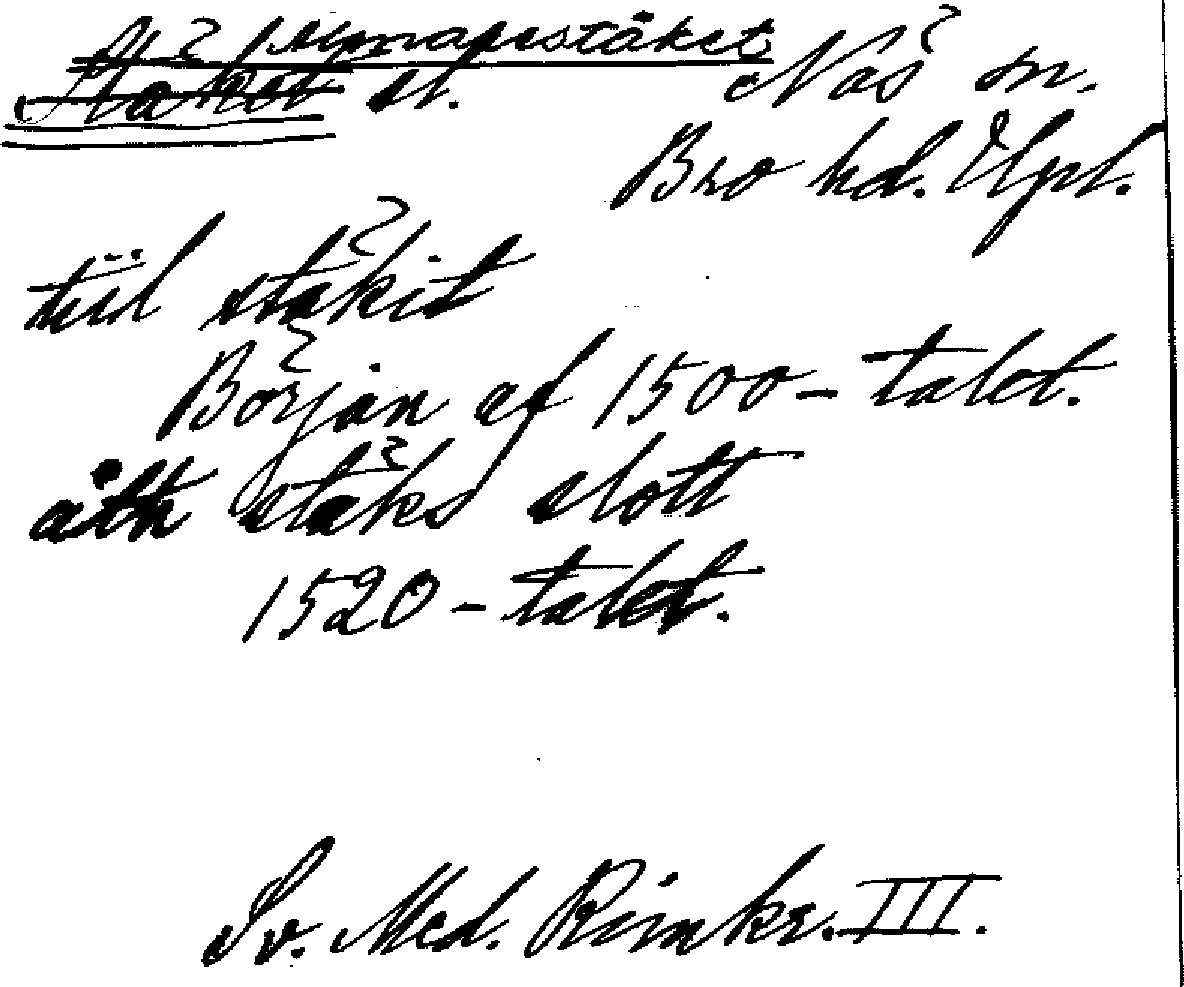 Almarestäket
Stäket sl. Näs sn.
Bro hd. Upl.
tiil stäkit
Början af 1500-talet.
åth stäks slott
1520-talet.
Sv. Med. Rimkr. III.